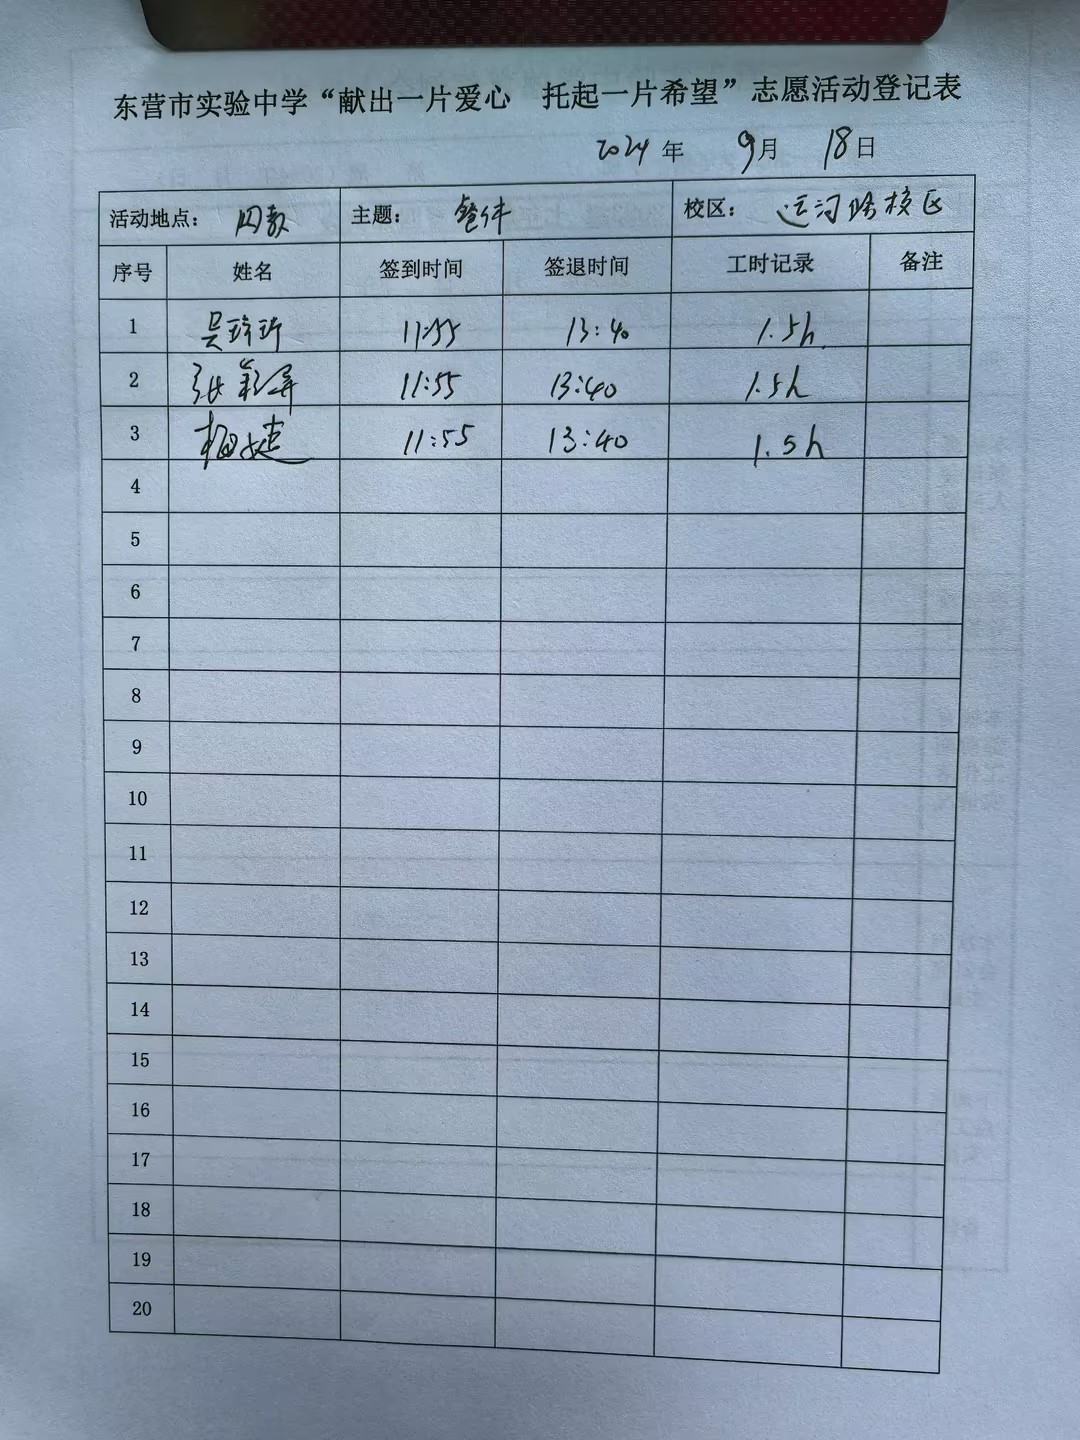 东营市实验中学“献出一片爱心 托起一片希望”志愿活动登记表
2024 年 9月 18日
活动地点： 四教 主题： 整体 校区： 运河路校区
序号 姓名 签到时间 签退时间 工时记录 备注
1 11:55 13:40 1.5h
2 张 11:55 13:40 1.5h
3 11:55 13:40 1.5h
4
5
6
7
8
9
10
11
12
13
14
15
16
17
18
19
20